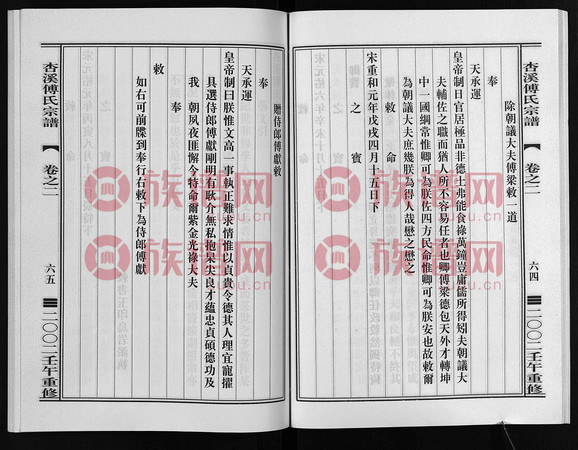 杏溪傅氏宗譜
卷之二
六四
二〇〇二壬午重修
除朝議大夫傅梁敕一道
奉
天承運
皇帝制曰官居極品非德士弗能食祿萬鐘豈庸儒所得矧夫朝議大
夫輔佐之職而猶人所不容易任者也卿傅梁德包天外才轉坤
中一國綱常惟卿可為朕佐四方民命惟卿可為朕安也故敕爾
為朝議大夫庶幾朕為得人哉懋之懋之
敕命
宋重和元年戊戌四月十五日下
之寶
贈侍郎傅獻敕
奉
天承運
皇帝制曰朕惟文高一事執正難求情惟以貞貴令德其人理宜寵擢
具選侍郎傅獻剛明有耿介無私抱杲尖良才蘊忠貞碩德功及
我朝夙夜匪懈今特命爾紫金光祿大夫
奉
敕
如右可前牒到奉行右敕下為侍郎傅獻
杏溪傅氏宗譜
卷之二
六五
二〇〇二壬午重修
族譜网
zupu.cn